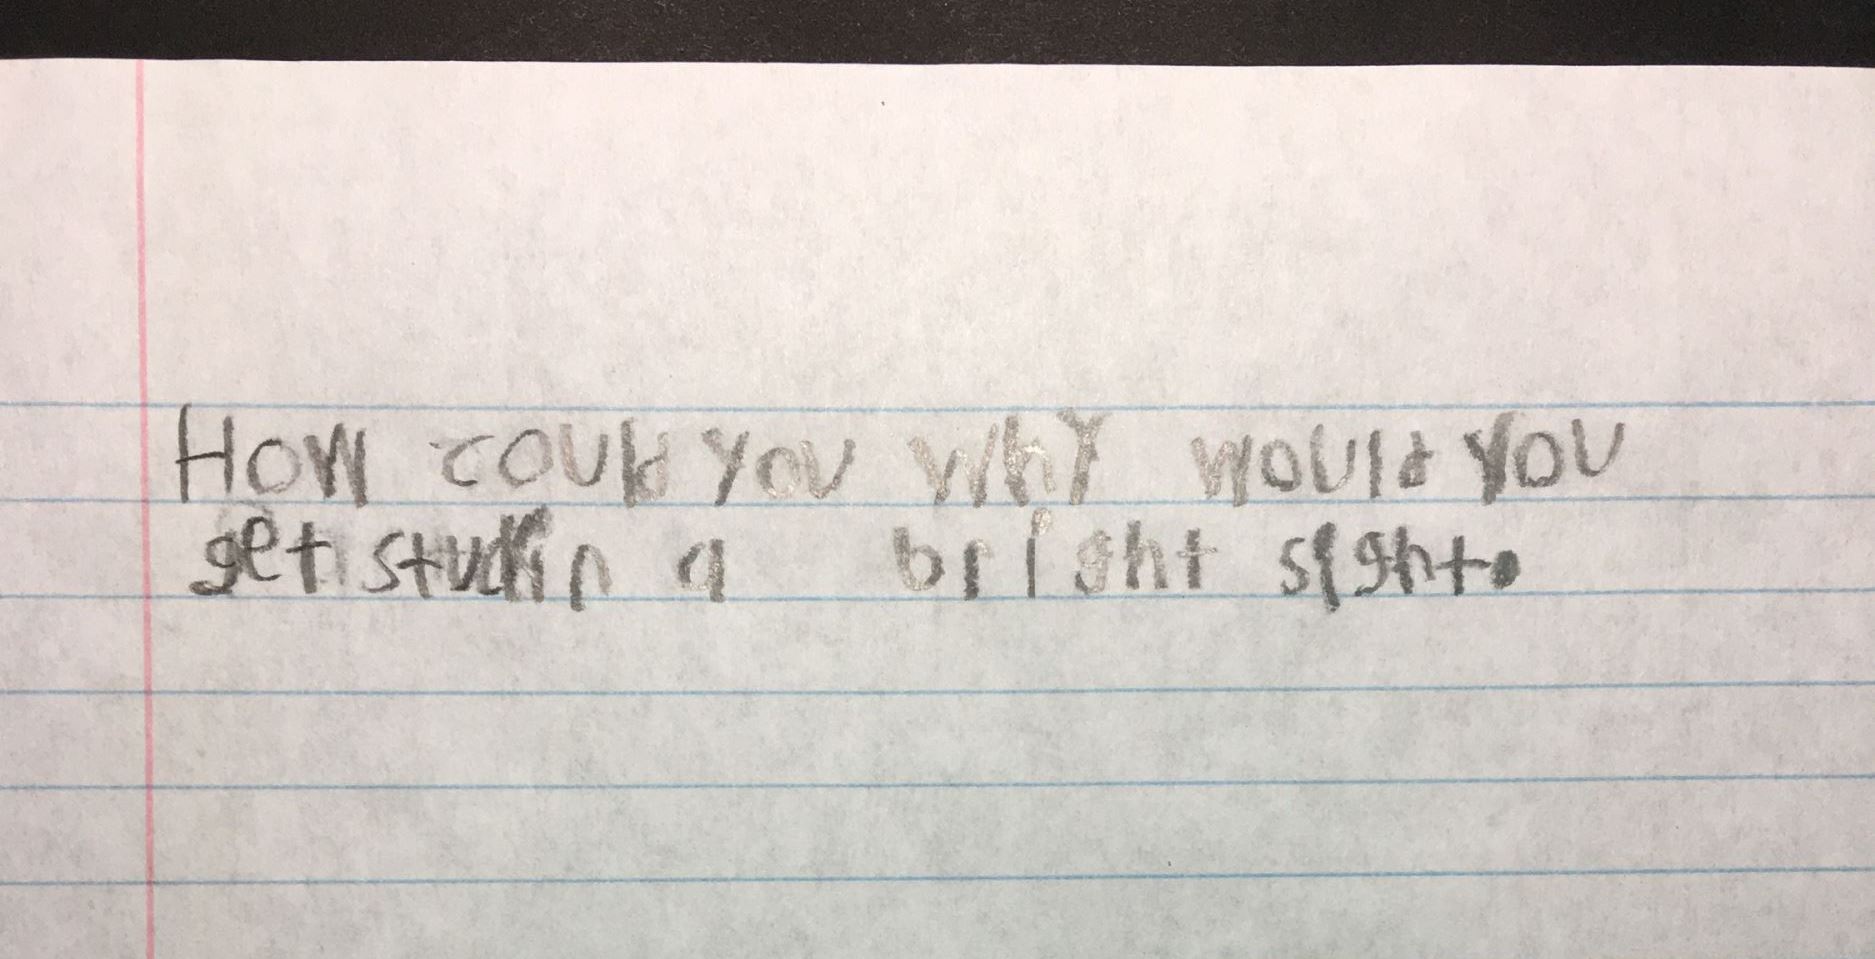 How could you why would you
get stuck in a bright sight.